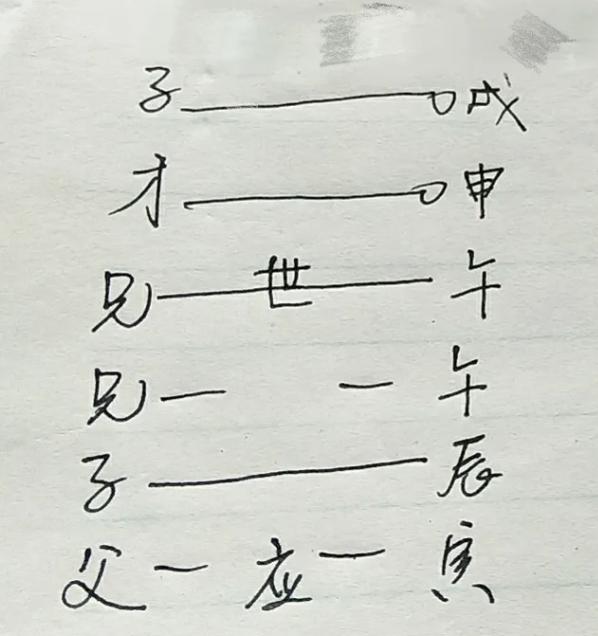 子 戌
才 申
兄 世 午
兄 午
子 辰
父 应 寅